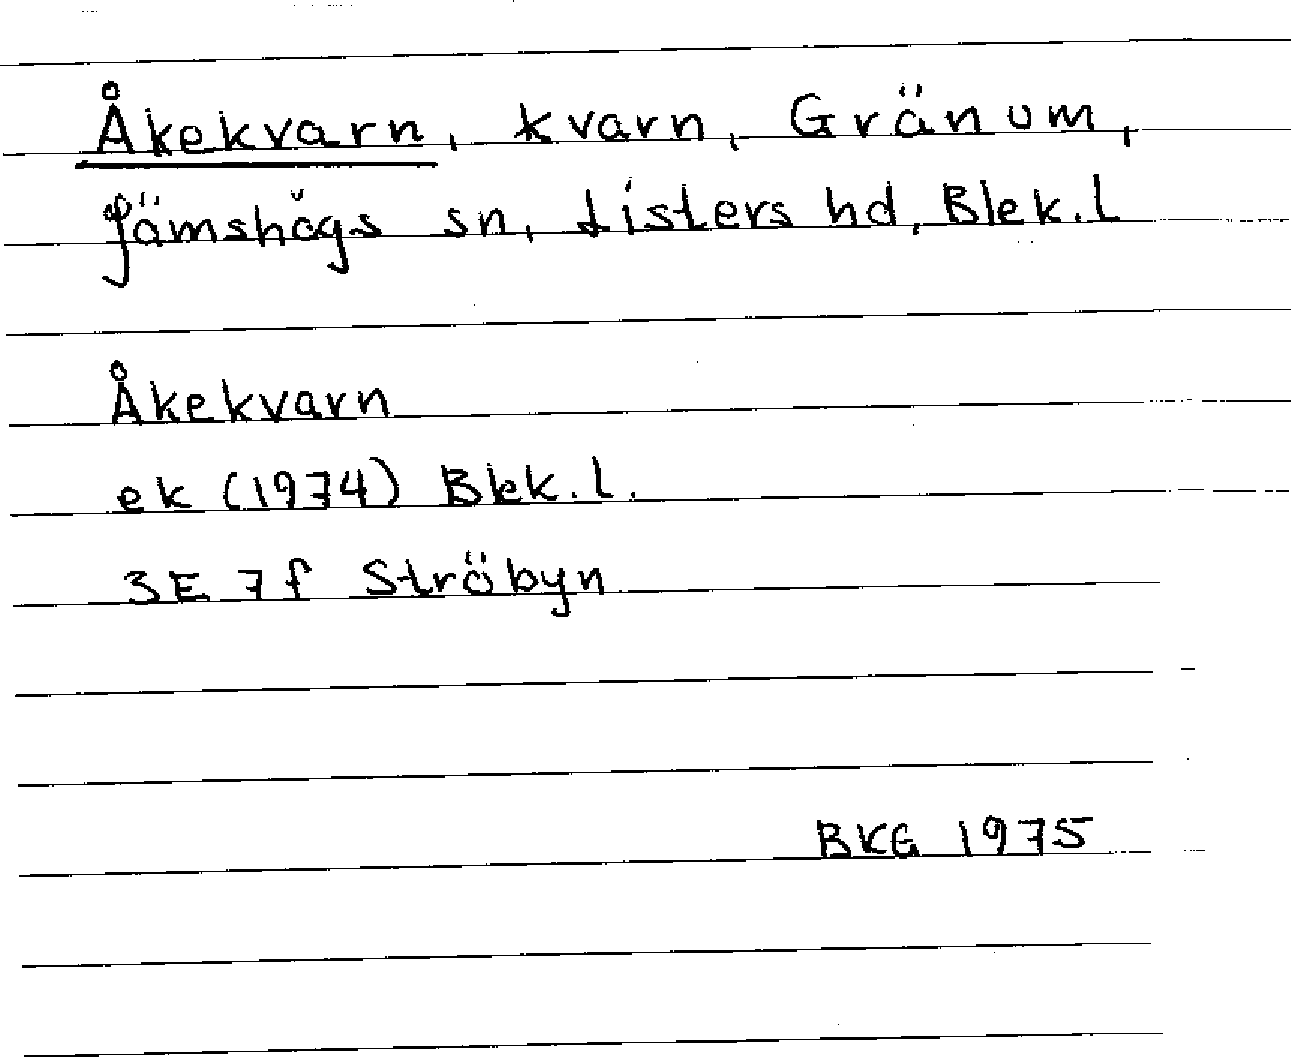 Åkekvarn, kvarn, Gränum,
Jämshögs sn, Listers hd, Blek.l
Åkekvarn
ek (1974) Blek.l.
3E 7f Ströbyn
BKG 1975